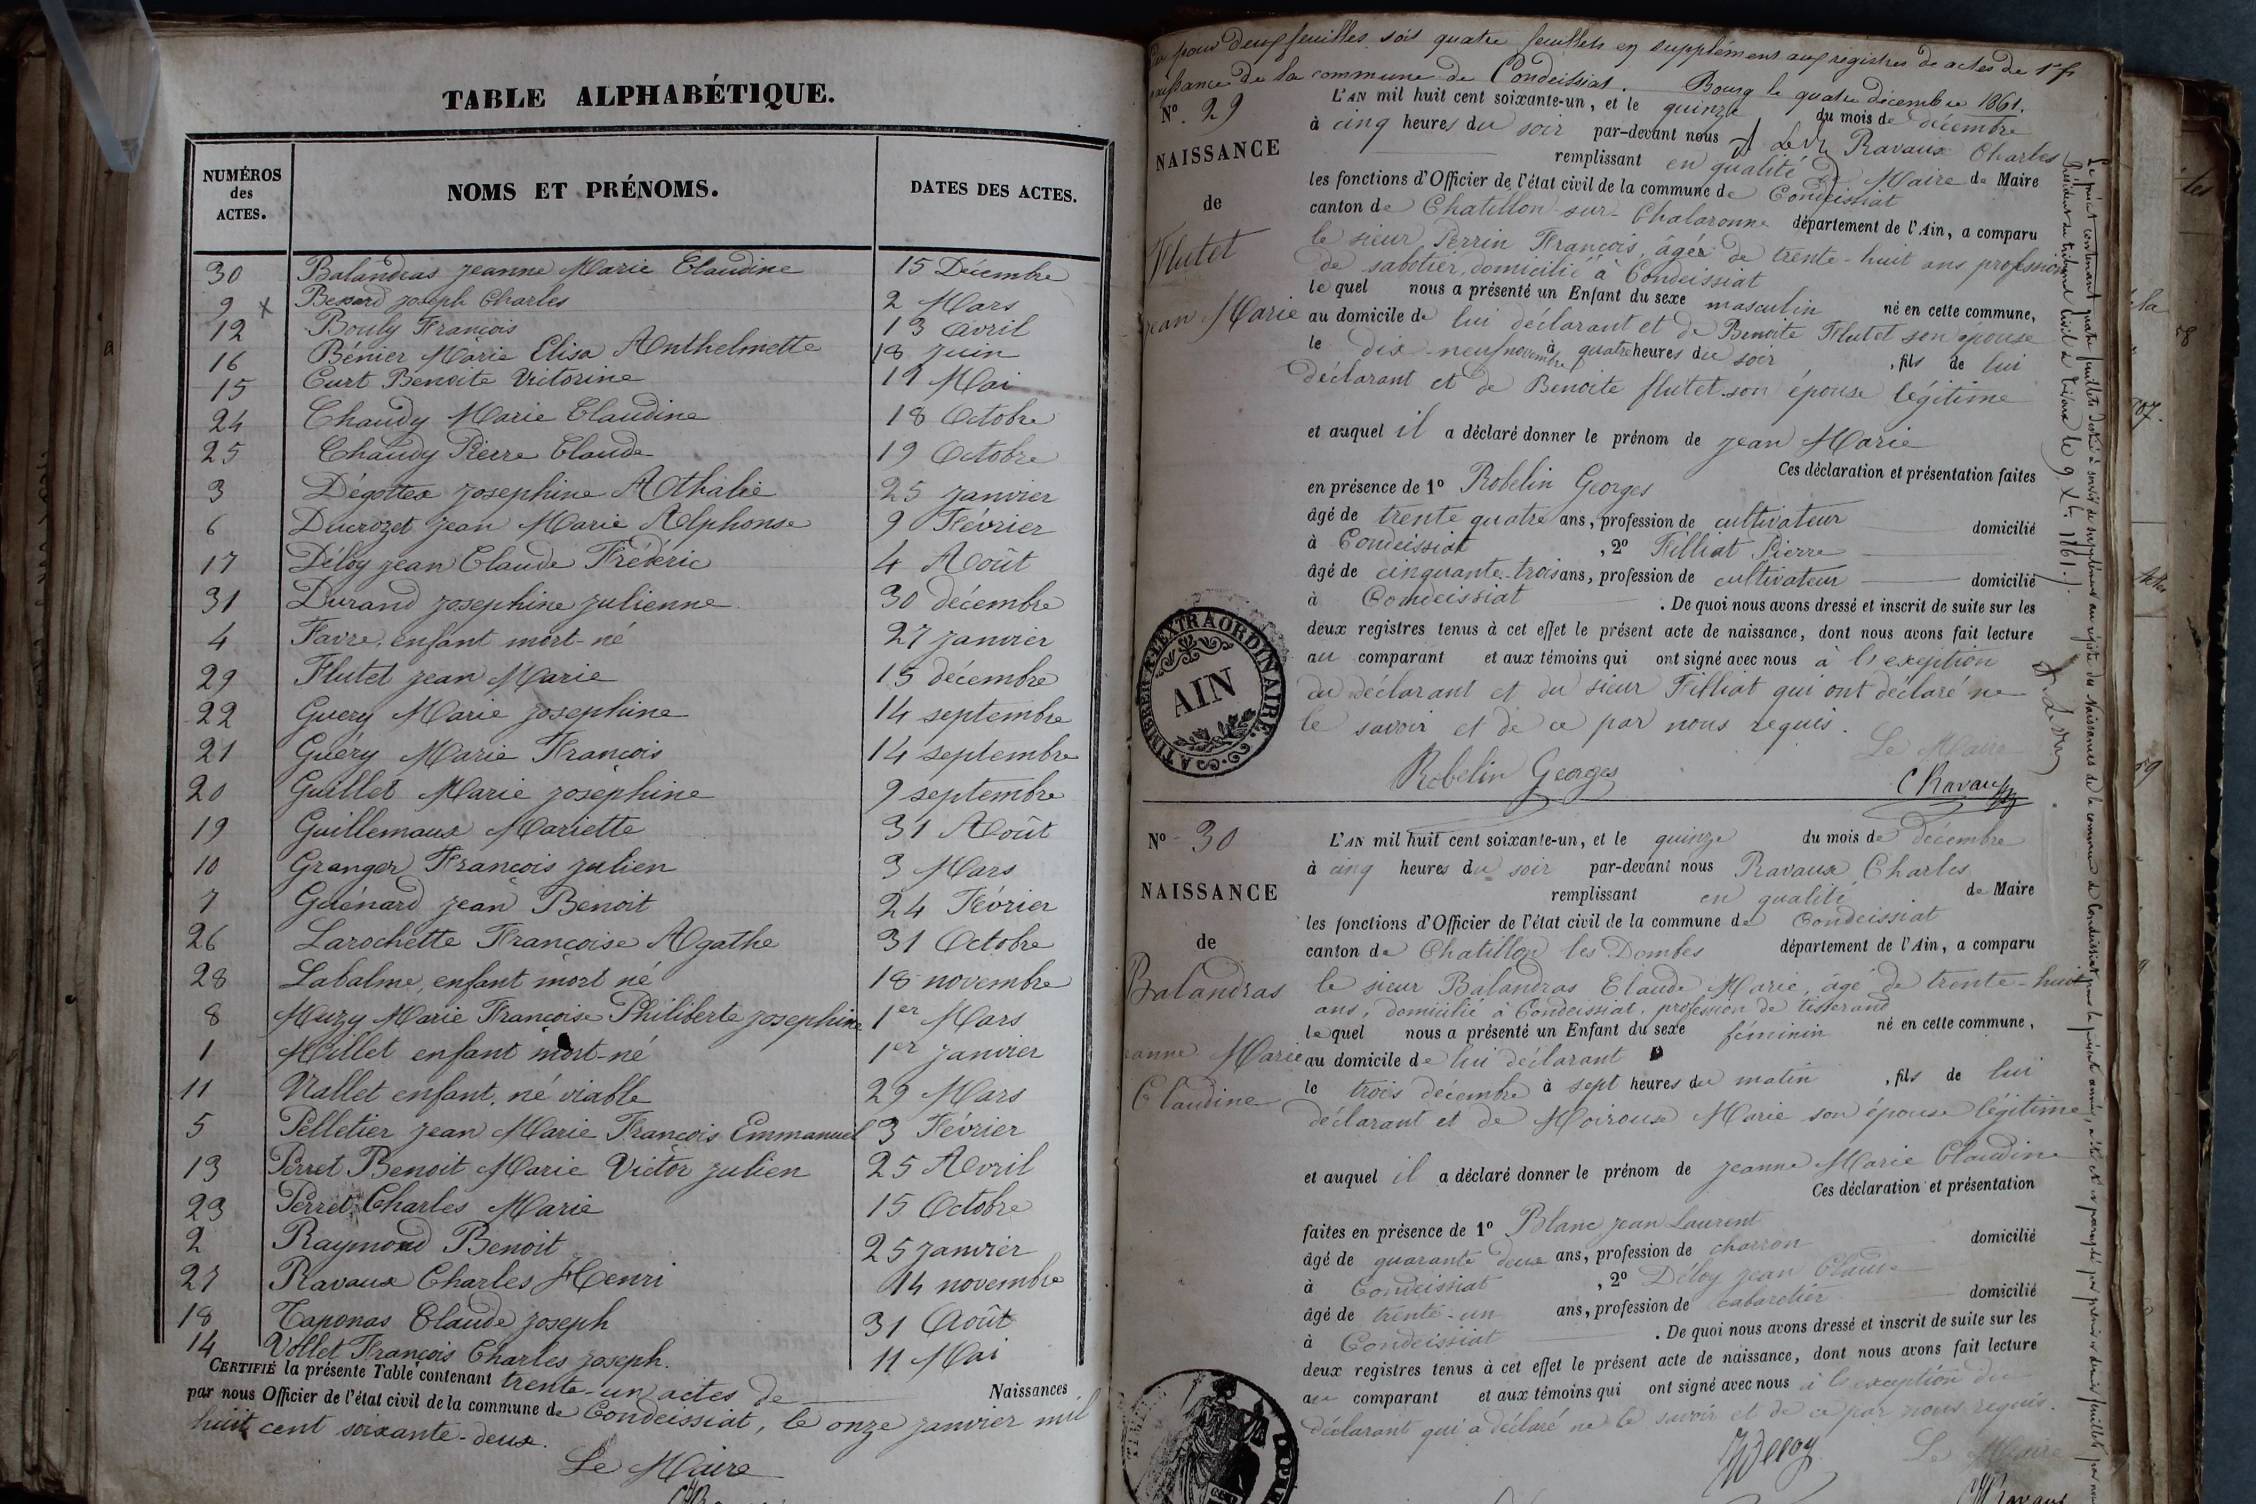 TABLE ALPHABÉTIQUE.
NUMÉROS des ACTES.
NOMS ET PRÉNOMS.
DATES DES ACTES.
30 Balandras Jeanne Marie Claudine 15 Décembre
9 x Bessard Joseph Charles 2 Mars
12 Bouly François 13 avril
16 Bénier Marie Elisa Anthelmette 18 Juin
15 Curt Benoite Victorine 19 Mai
24 Chaudy Marie Claudine 18 Octobre
25 Chaudy Pierre Claude 19 Octobre
3 Dégottex Josephine Athalie 25 Janvier
6 Ducrozet Jean Marie Alphonse 9 Février
17 Déloy Jean Claude Fréderic 4 Août
31 Durand Josephine Julienne 30 décembre
4 Favre, enfant mort-né 27 Janvier
29 Flutet Jean Marie 15 décembre
22 Guery Marie Josephine 14 septembre
21 Guéry Marie François 14 septembre
20 Guillet Marie Josephine 9 septembre
19 Guillemaux Mariette 31 Août
10 Granger François Julien 3 Mars
7 Guénard Jean Benoit 24 Février
26 Larochette Françoise Agathe 31 Octobre
28 Labalme, enfant mort né 18 novembre
8 Muzy Marie Françoise Philiberte Josephine 1er Mars
1 Millet enfant mort-né 1er Janvier
11 Nallet enfant né viable 29 Mars
5 Pelletier Jean Marie François Emmanuel 3 Février
13 Perret Benoit Marie Victor Julien 25 Avril
23 Perret Charles Marie 15 Octobre
2 Raymond Benoit 25 Janvier
27 Ravaux Charles Henri 14 novembre
18 Taponas Claude Joseph 31 Août
14 Vollet François Charles Joseph. 11 Mai
CERTIFIÉ la présente Table contenant trente-un actes de Naissances
par nous Officier de l'état civil de la commune de Condeissiat, le onze janvier mil
huit cent soixante-deux.
Le Maire
pour deux feuilles soit quatre feuillets en supplément aux registres de actes de
naissance de la commune de Condeissiat. Bourg le quatre décembre 1861.
N° 29
NAISSANCE
de
Flutet
Jean Marie
L'AN mil huit cent soixante-un, et le quinze du mois de décembre
à cinq heures du soir par-devant nous Ravaux Charles
remplissant en qualité de Maire de Maire
les fonctions d'Officier de l'état civil de la commune de Condeissiat
canton de Chatillon-sur-Chalaronne département de l'Ain, a comparu
le sieur Perrin François, âgé de trente-huit ans profession
de sabotier, domicilié à Condeissiat
lequel nous a présenté un Enfant du sexe masculin né en cette commune,
au domicile de lui déclarant et de Benoite Flutet son épouse
le dix neuf novembre à quatre heures du soir, fils de lui
déclarant et de Benoite flutet son épouse légitime
et auquel il a déclaré donner le prénom de Jean Marie
Ces déclaration et présentation faites
en présence de 1° Robelin Georges
âgé de trente quatre ans, profession de cultivateur domicilié
à Condeissiat, 2° Filliat Pierre
âgé de cinquante-trois ans, profession de cultivateur domicilié
à Condeissiat. De quoi nous avons dressé et inscrit de suite sur les
deux registres tenus à cet effet le présent acte de naissance, dont nous avons fait lecture
au comparant et aux témoins qui ont signé avec nous à l'exeption
du déclarant et du sieur Filliat qui ont déclaré ne
le savoir et de ce par nous requis.
Le Maire
Robelin Georges
C Ravaux
TIMBRE A L'EXTRAORDINAIRE
AIN
N° 30
NAISSANCE
de
Balandras
Jeanne Marie
Claudine
L'AN mil huit cent soixante-un, et le quinze du mois de décembre
à cinq heures du soir par-devant nous Ravaux Charles
remplissant en qualité de Maire
les fonctions d'Officier de l'état civil de la commune de Condeissiat
canton de Chatillon les Dombes département de l'Ain, a comparu
le sieur Balandras Claude Marie, âgé de trente-huit
ans, domicilié à Condeissiat, profession de tisserand
lequel nous a présenté un Enfant du sexe féminin né en cette commune,
au domicile de lui déclarant
le trois décembre à sept heures du matin, fils de lui
déclarant et de Moiroux Marie son épouse légitime
et auquel il a déclaré donner le prénom de Jeanne Marie Claudine
Ces déclaration et présentation
faites en présence de 1° Blanc Jean Laurent
âgé de quarante deux ans, profession de charron domicilié
à Condeissiat, 2° Déloy Jean Claude
âgé de trente-un ans, profession de cabaretier domicilié
à Condeissiat. De quoi nous avons dressé et inscrit de suite sur les
deux registres tenus à cet effet le présent acte de naissance, dont nous avons fait lecture
au comparant et aux témoins qui ont signé avec nous à l'exception du
déclarant qui a déclaré ne le savoir et de ce par nous requis.
Le Maire
Déloy
Ravaux